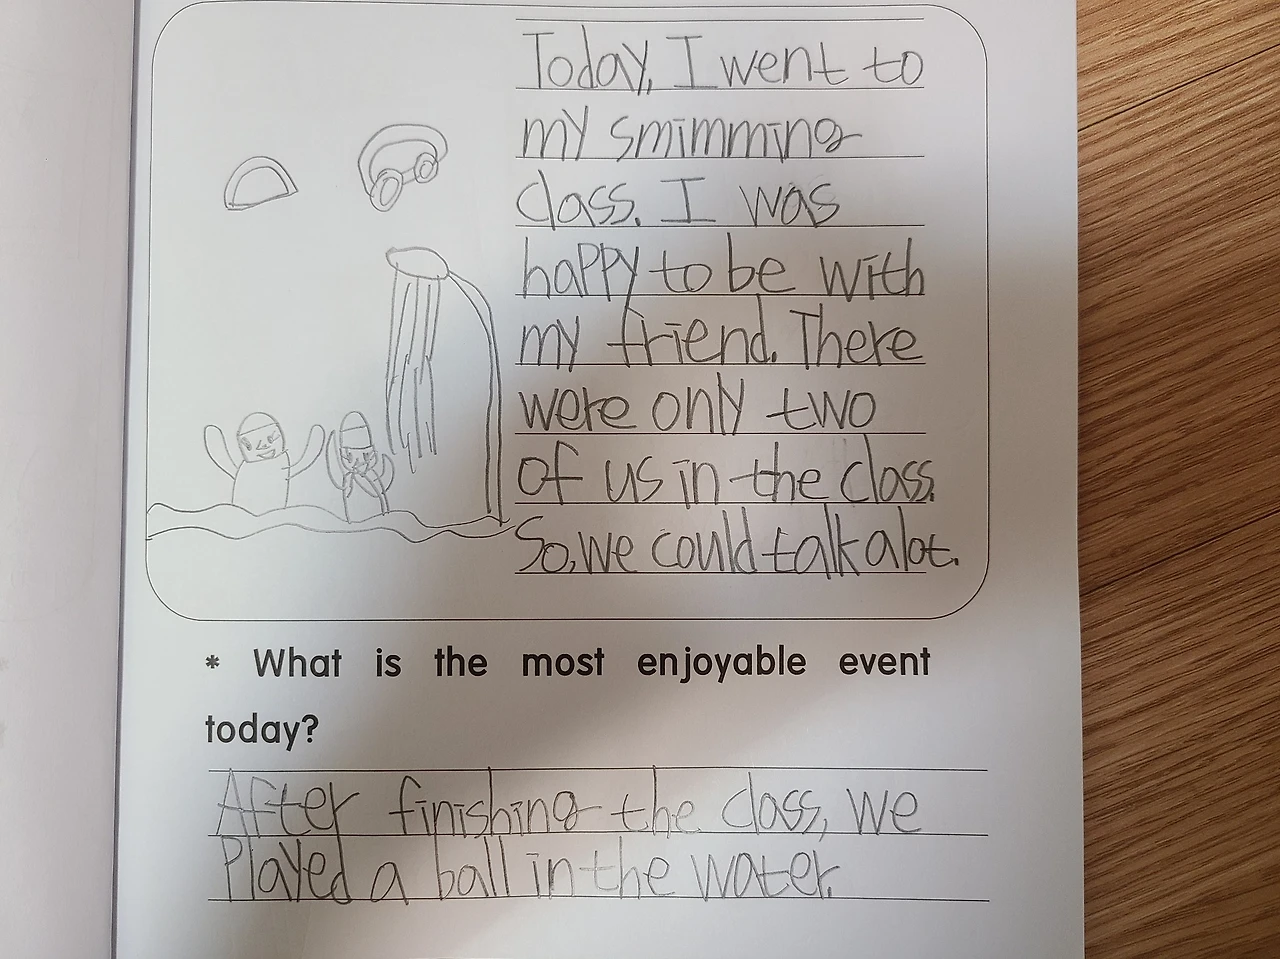 Today, I went to
my smimming
class. I was
happy to be with
my friend. There
were only two
of us in the class.
So, we could talk a lot.
* What is the most enjoyable event
today?
After finishing the class, we
Played a ball in the water.